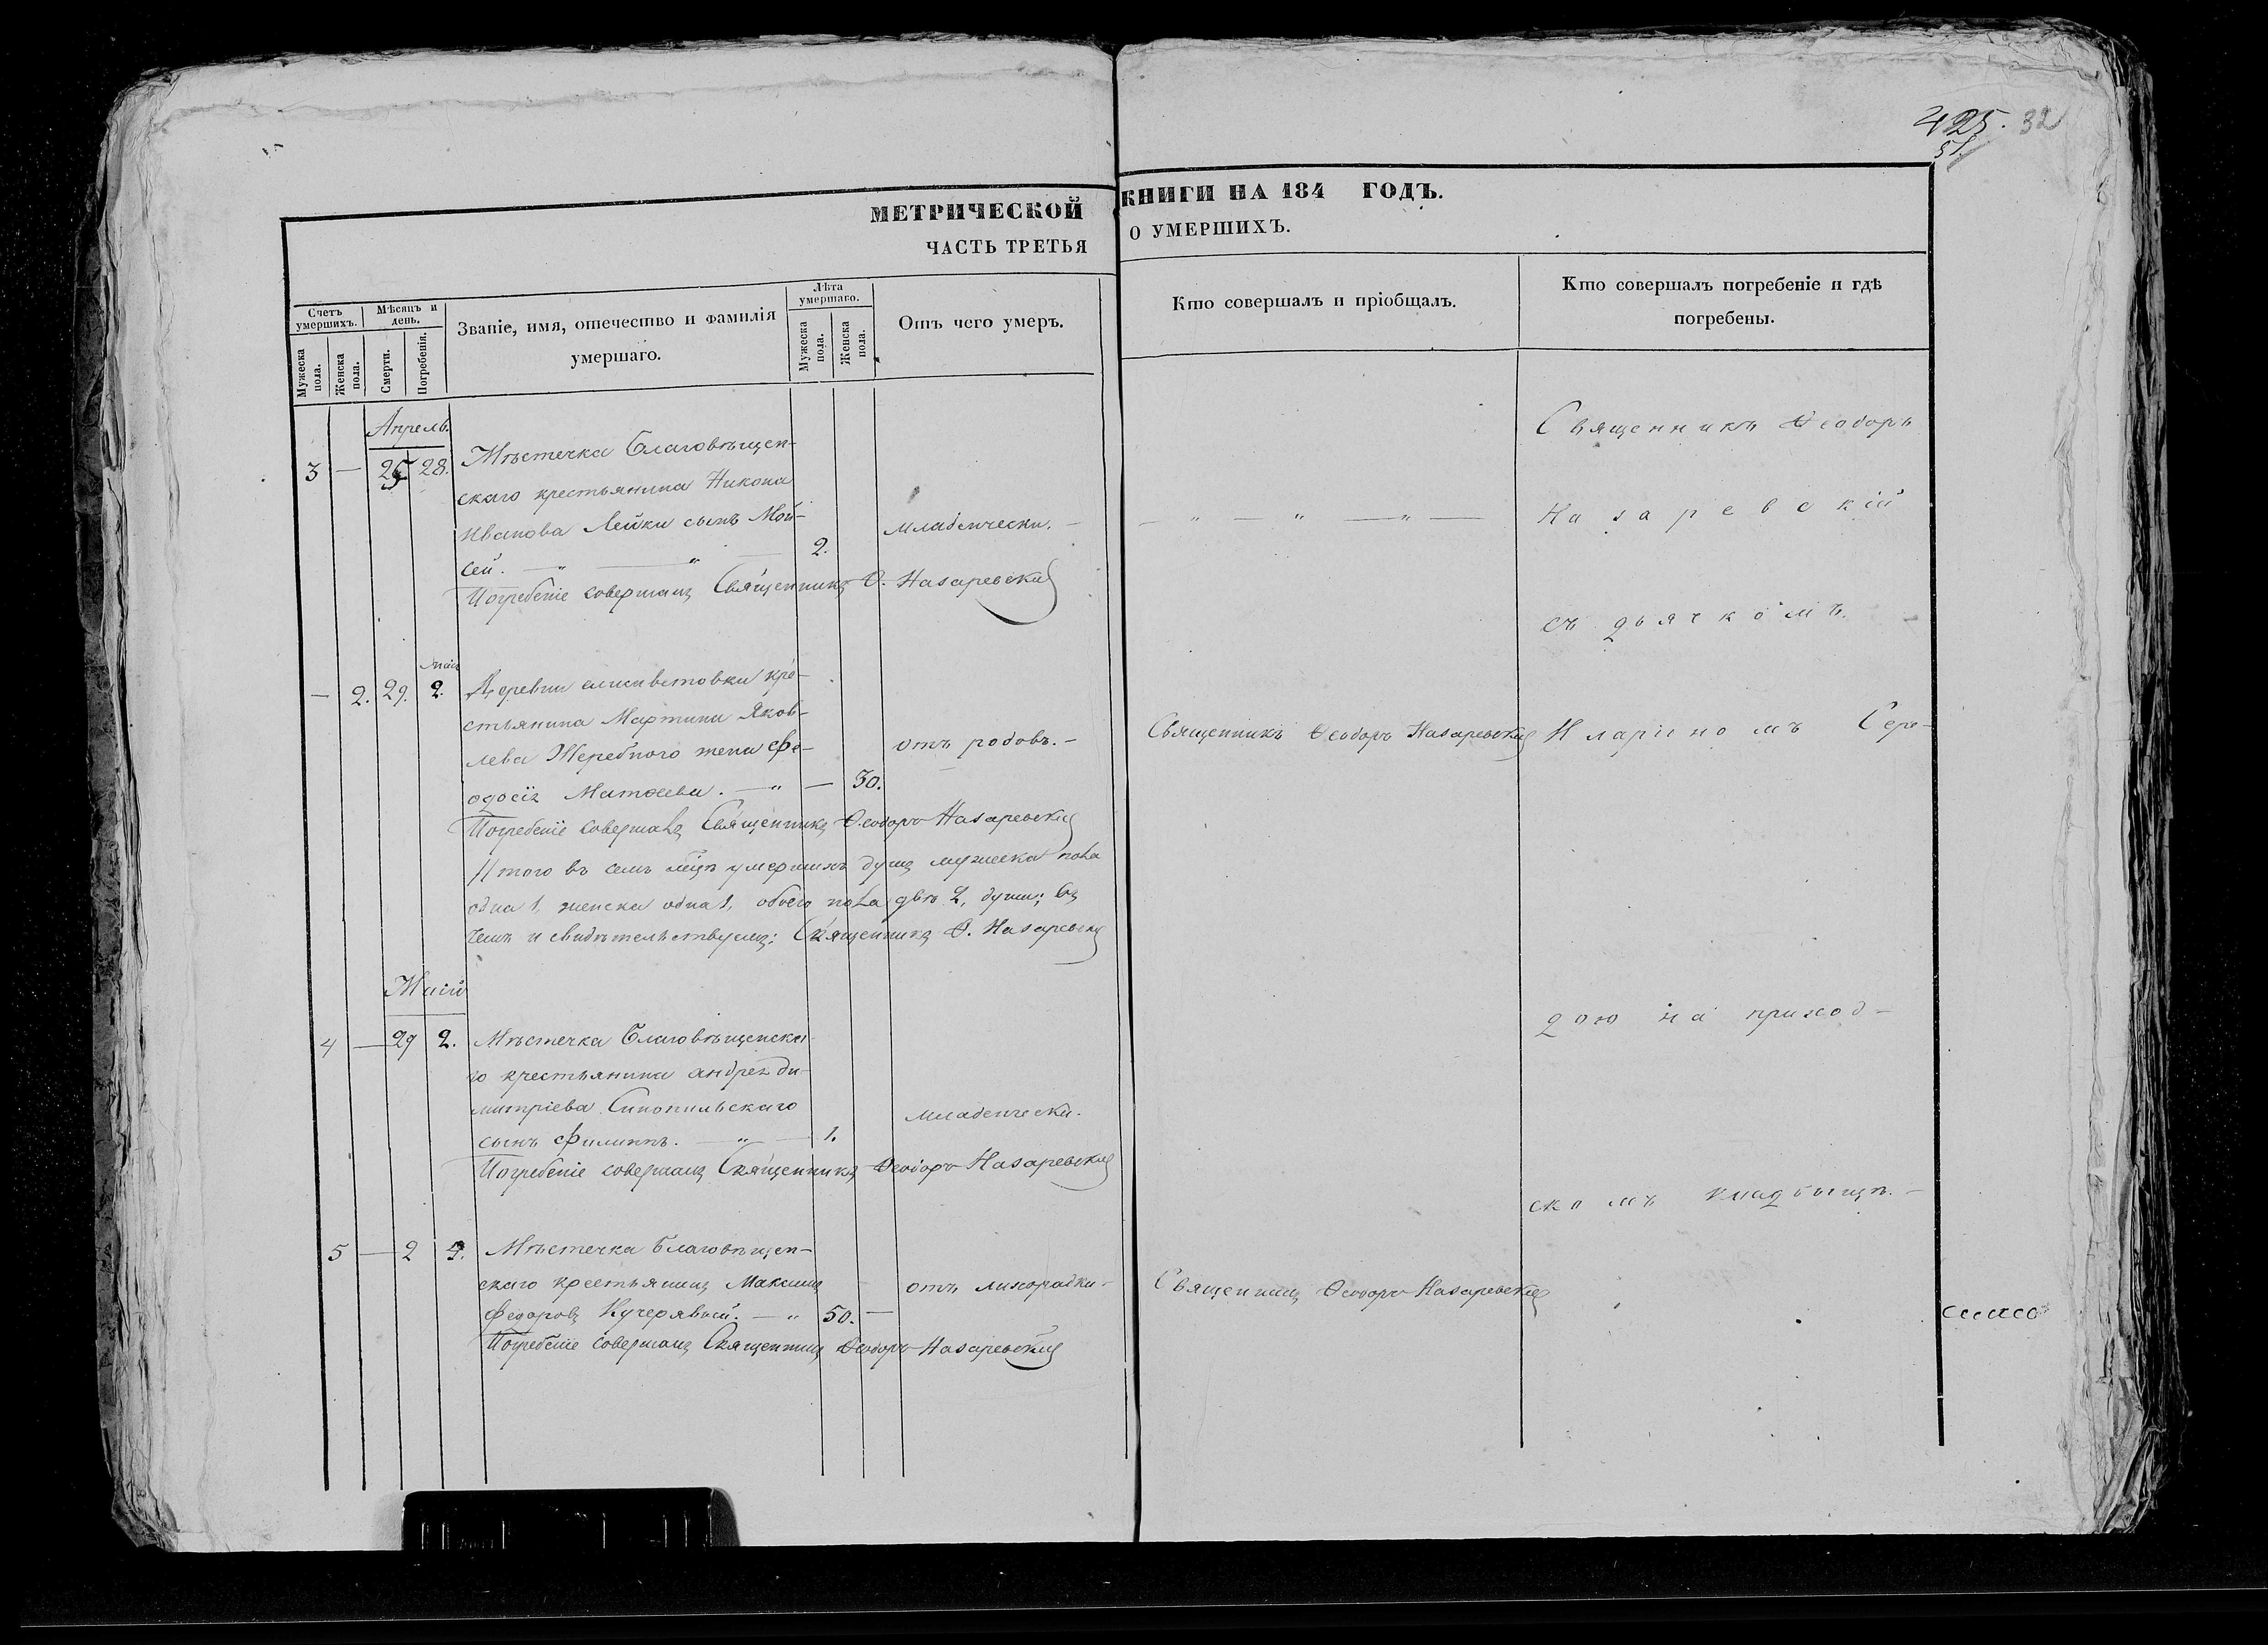 425. 32
51.
МЕТРИЧЕСКОЙ КНИГИ НА 184 ГОДЪ.
ЧАСТЬ ТРЕТЬЯ О УМЕРШИХЪ.
Счетъ умершихъ.
Мужеска пола.
Женска пола.
Мѣсяцъ и день.
Смерти.
Погребенія.
Званіе, имя, отечество и фамилія
умершаго.
Лѣта умершаго.
Мужеска пола.
Женска пола.
Отъ чего умеръ.
Кто совершалъ и пріобщалъ.
Кто совершалъ погребеніе и гдѣ
погребены.
Апрель.
3 — 25 28. Мѣстечка Благовѣщен-
скаго крестьянина Никона
Иванова Лейки сынъ Мой-
сей. — „ — „ — 2. младенчески. —
Погребеніе совершалъ Священникъ Ѳ. Назаревскій
маія
— 2. 29. 2. Деревни елисаветовки кре-
стьянина Мартина Яков-
лева Жеребного жена Фе-
одосія Матѳеева. — „ — 30. отъ родовъ. —
Священникъ Ѳеодоръ Назаревскій
Погребеніе совершалъ Священникъ Ѳеодоръ Назаревскій
Итого въ семъ мцѣ умершихъ душъ мужеска пола
одна 1, женска одна 1, обоего пола двѣ 2, души; въ
чемъ и свидѣтельствуемъ: Священникъ Ѳ. Назаревскій
Маій
4 — 29 2. Мѣстечка Благовѣщенска-
го крестьянина андрея ди-
митріева Синопильскаго
сынъ Филиппъ. — „ — 1. младенчески.
Погребеніе совершалъ Священникъ Ѳеодоръ Назаревскій
5 — 2 4. Мѣстечка Благовѣщен-
скаго крестьянинъ Максимъ
Федоровъ Кучерявый. — „ 50. — отъ лихорадки —
Священникъ Ѳеодоръ Назаревскій
Погребеніе совершалъ Священникъ Ѳеодоръ Назаревскій
— „ — „ — „ —
Священникъ Ѳеодоръ
Назаревскій
съ дьячкомъ.
Иларіономъ Сере-
дою на приход-
скомъ кладбищѣ. —